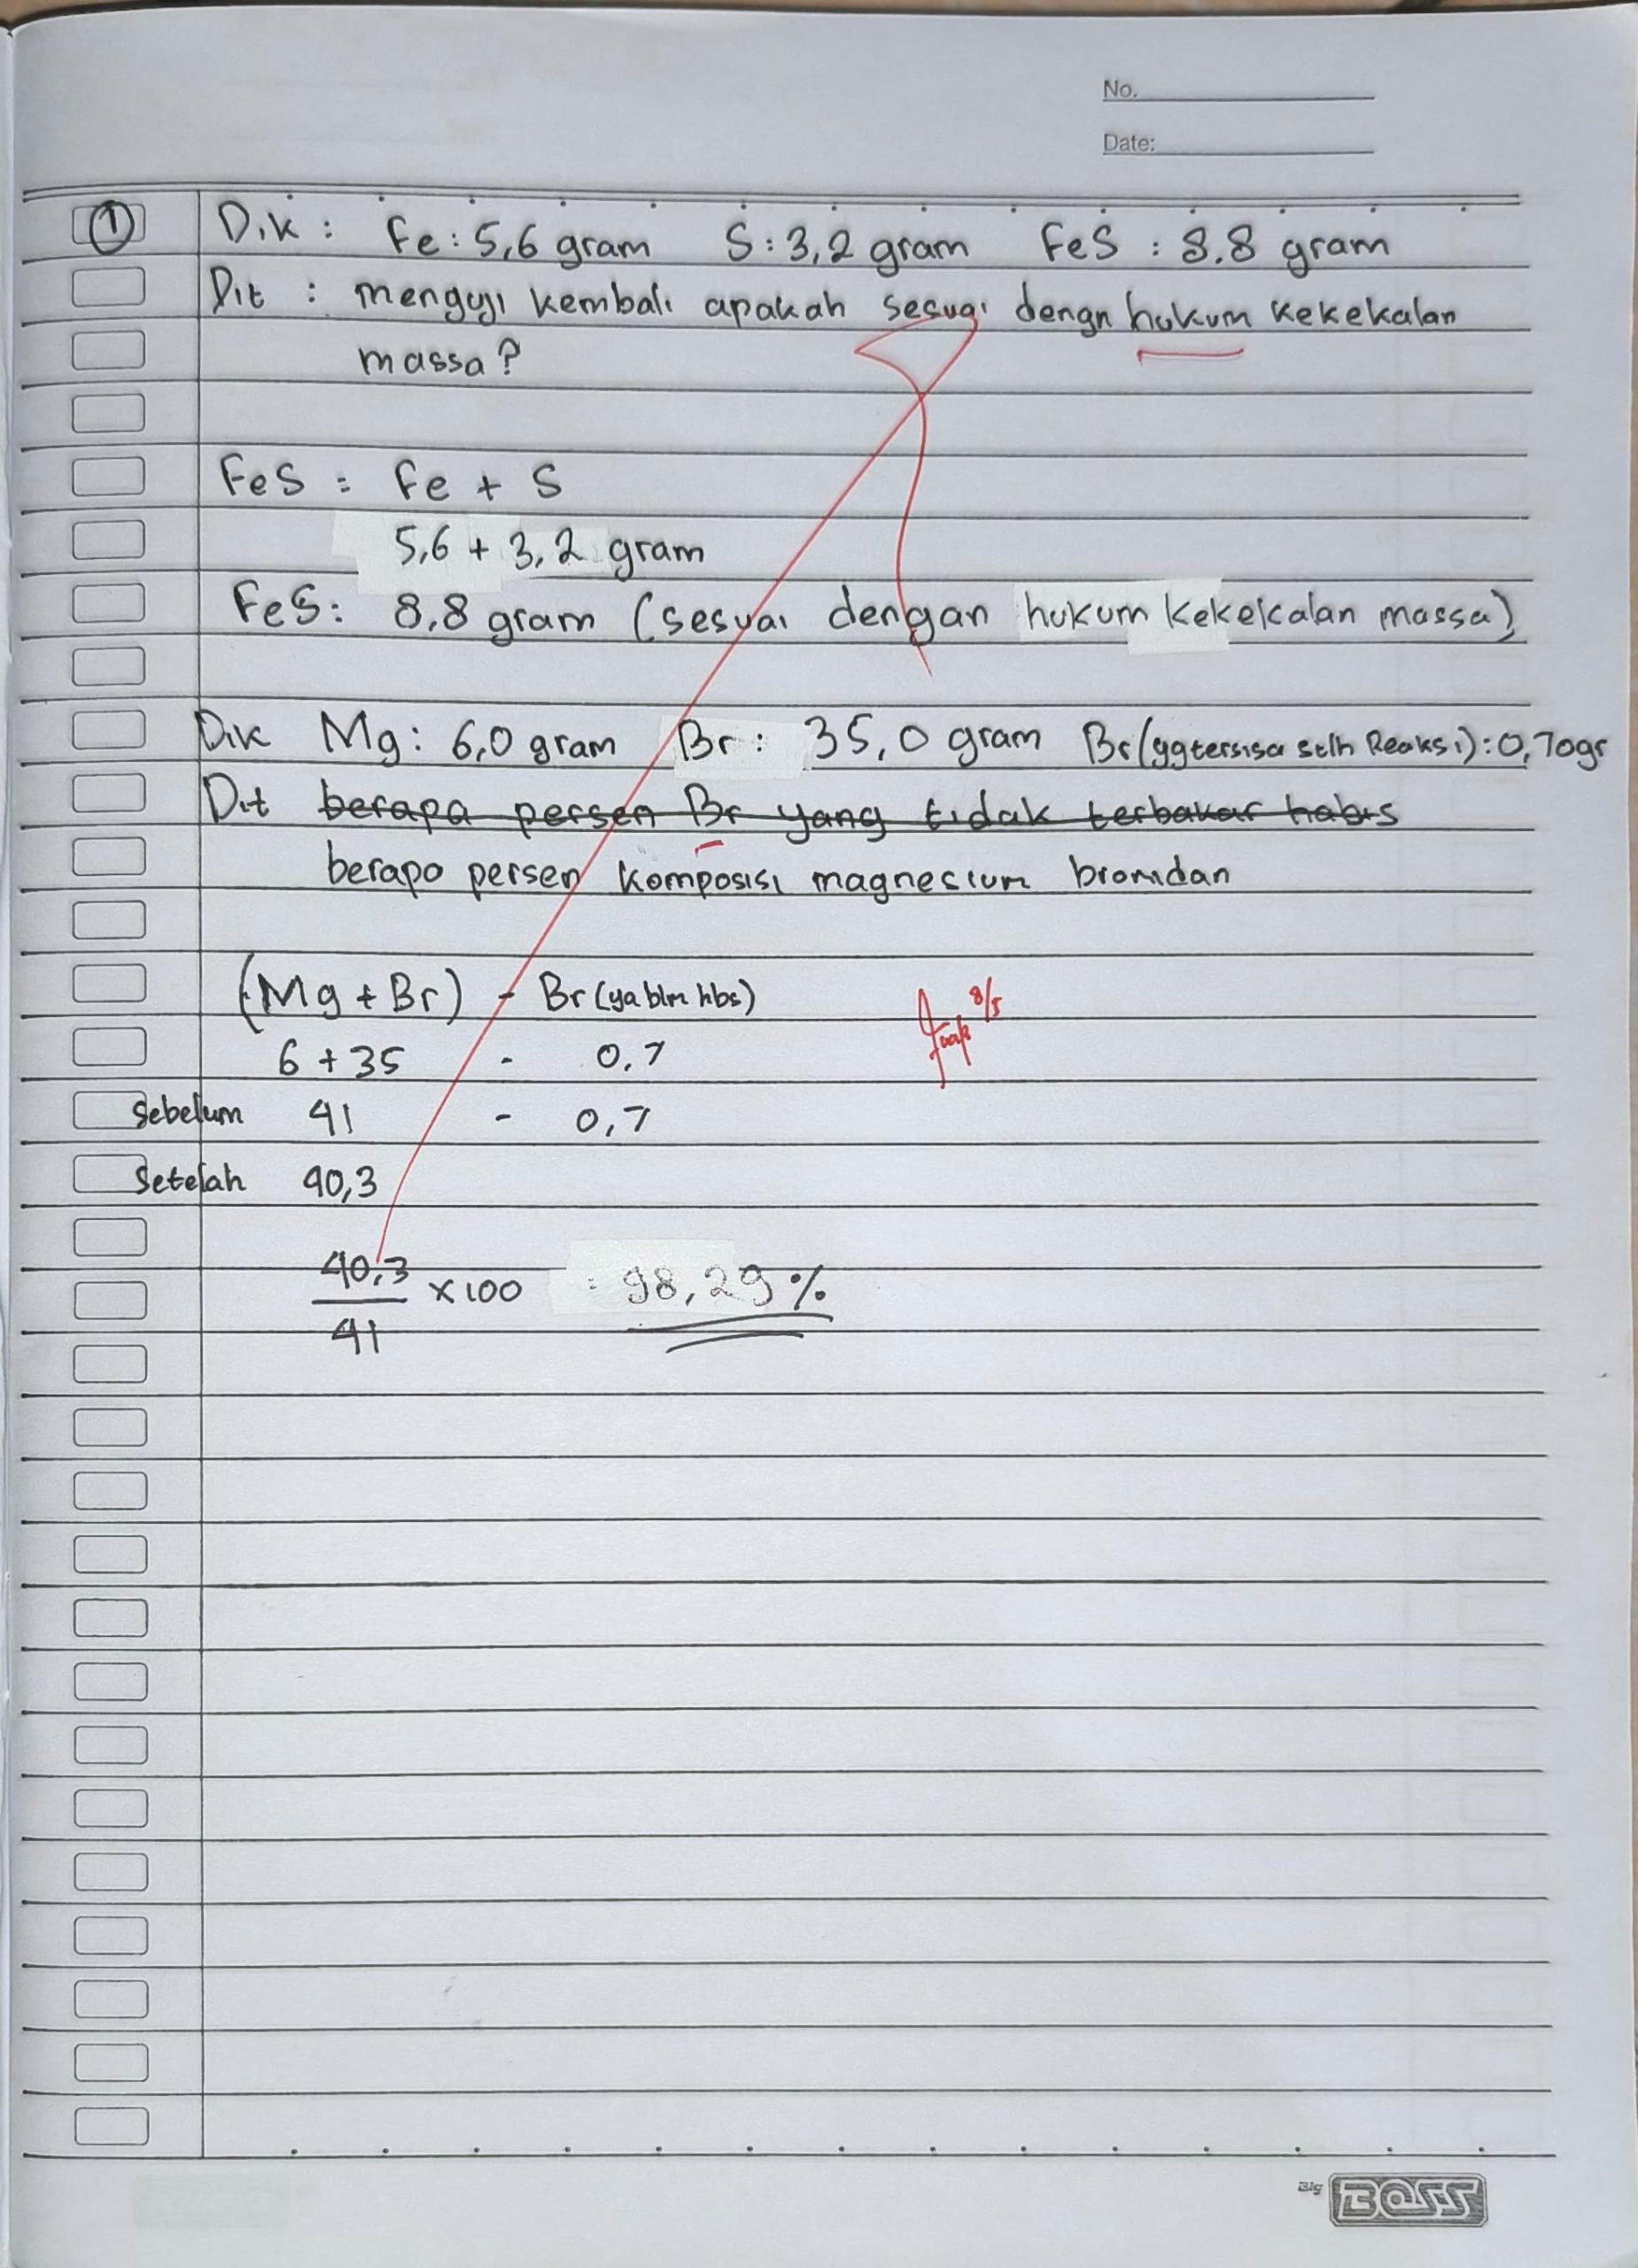 No.
Date:
① Dik : Fe : 5,6 gram S : 3,2 gram FeS : 8.8 gram
Dit : menguji kembali apakah sesuai dengn hukum kekekalan
massa?
FeS = Fe + S
5,6 + 3,2 gram
FeS: 8,8 gram (sesuai dengan hukum kekekalan massa)
Dik Mg: 6,0 gram Br : 35,0 gram Br (yg tersisa stlh Reaksi) : 0,70 gr
Dit berapa persen Br yang tidak terbakar habis
berapa persen komposisi magnesium bromdan
(Mg + Br) - Br (ya blm hbs)
6 + 35 - 0,7
Sebelum 41 - 0,7
Setelah 40,3
40,3
x 100 = 98,29 %
41
8/5
Big BOSS